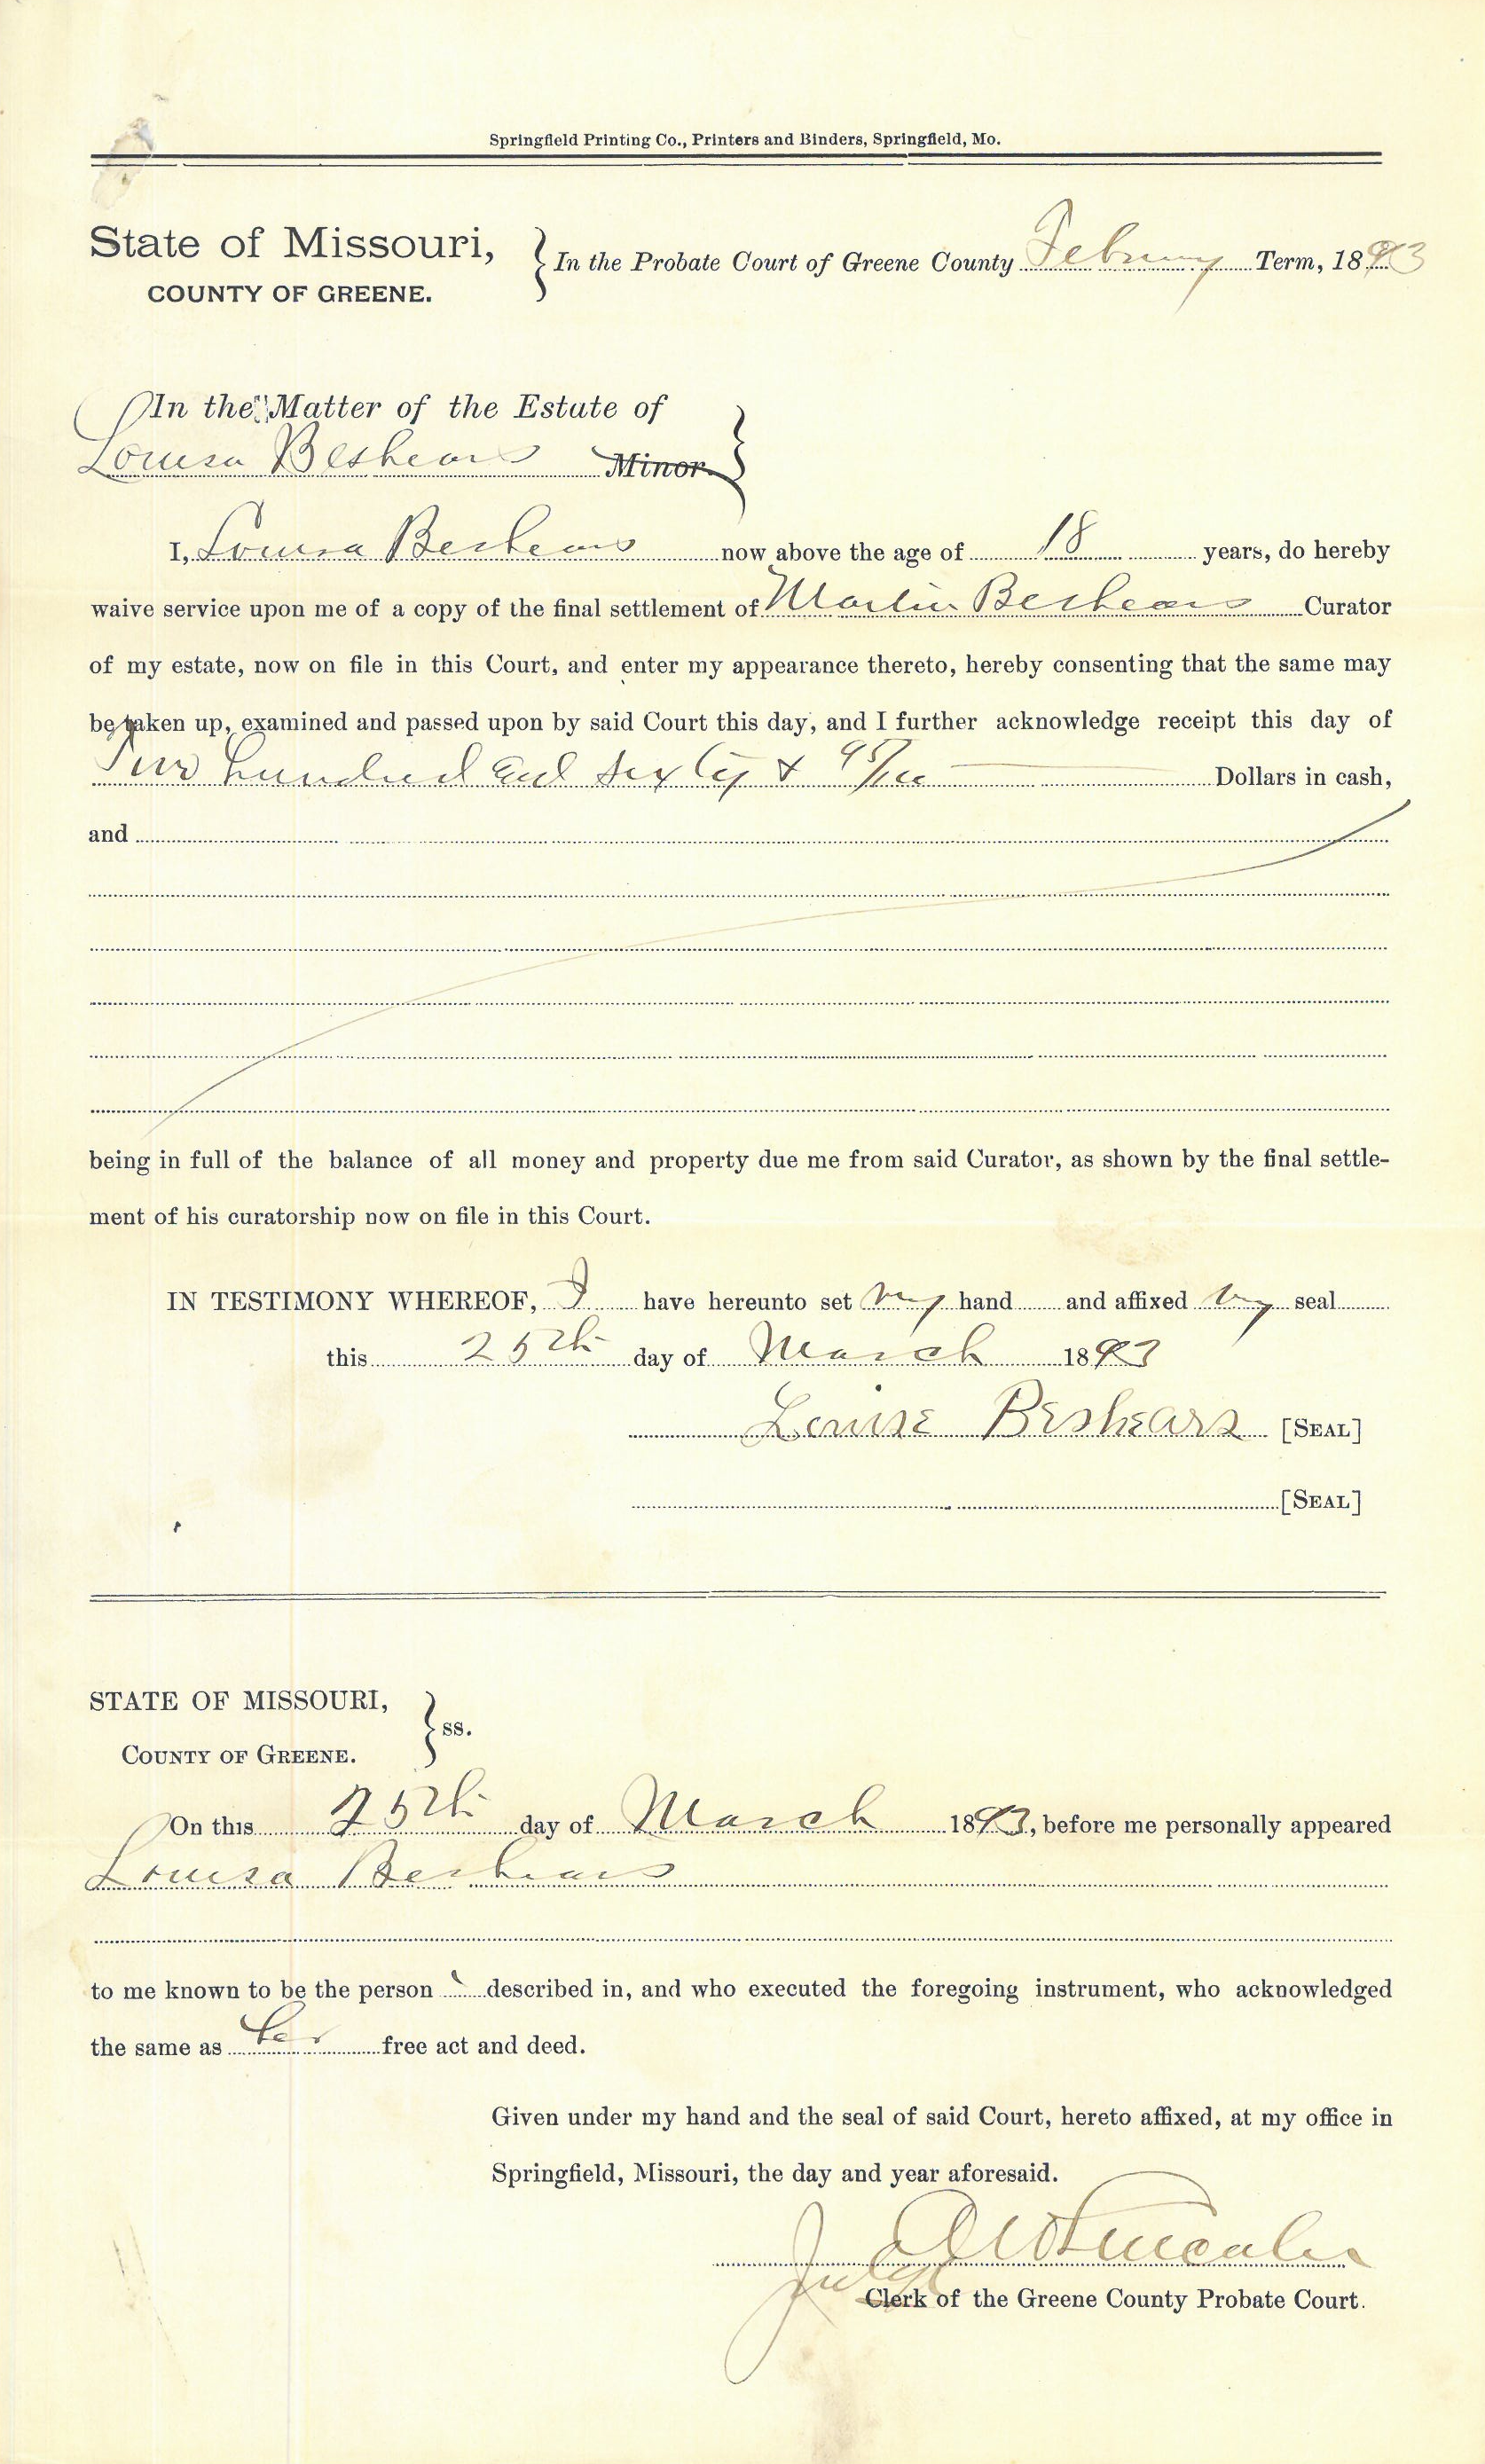 Springfield Printing Co., Printers and Binders, Springfield, Mo.
State of Missouri,
COUNTY OF GREENE.
In the Probate Court of Greene County February Term, 1893
In the Matter of the Estate of
Louisa Beshears Minor.
I, Louisa Beshears now above the age of 18 years, do hereby
waive service upon me of a copy of the final settlement of Martin Beshears Curator
of my estate, now on file in this Court, and enter my appearance thereto, hereby consenting that the same may
be taken up, examined and passed upon by said Court this day, and I further acknowledge receipt this day of
Two hundred and sixty & 95/100 Dollars in cash,
and
being in full of the balance of all money and property due me from said Curator, as shown by the final settle-
ment of his curatorship now on file in this Court.
IN TESTIMONY WHEREOF, I have hereunto set my hand and affixed my seal
this 25th day of March 1893
Louise Beshears [SEAL]
[SEAL]
STATE OF MISSOURI,
COUNTY OF GREENE.
ss.
On this 25th day of March 1893, before me personally appeared
Louisa Beshears
to me known to be the person described in, and who executed the foregoing instrument, who acknowledged
the same as her free act and deed.
Given under my hand and the seal of said Court, hereto affixed, at my office in
Springfield, Missouri, the day and year aforesaid.
Judge
Clerk of the Greene County Probate Court.